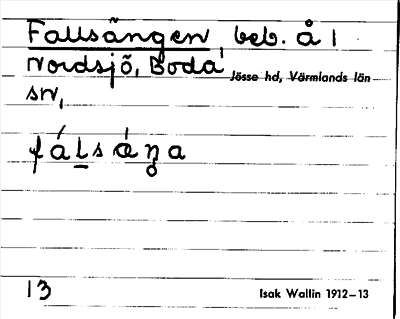 Fallsängen, beb. å 1
Nordsjö, Boda Jösse hd, Värmlands län
sn,
fálsǽŋa
13 Isak Wallin 1912–13